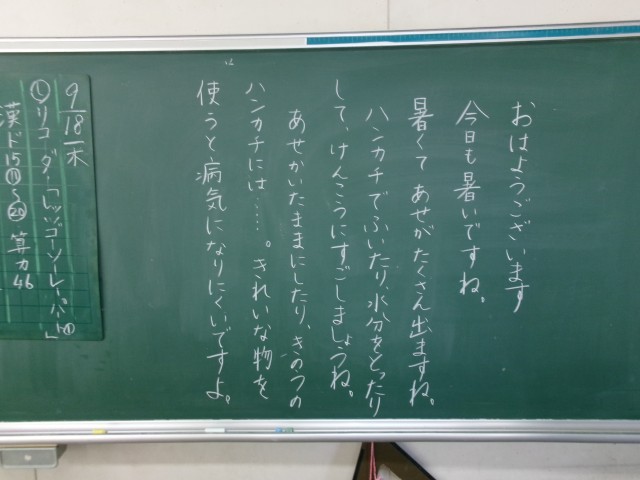 おはようございます
今日も暑いですね。
暑くて あせがたくさん出ますね。
ハンカチでふいたり、水分をとったり
して、けんこうにすごしましょうね。
あせかいたままにしたり、きのうの
ハンカチには……。きれいな物を
使うと病気になりにくいですよ。
9/18 木
リコーダー「レッツゴーソーレーパート①」
漢ド15⑪〜⑳ 算カ46